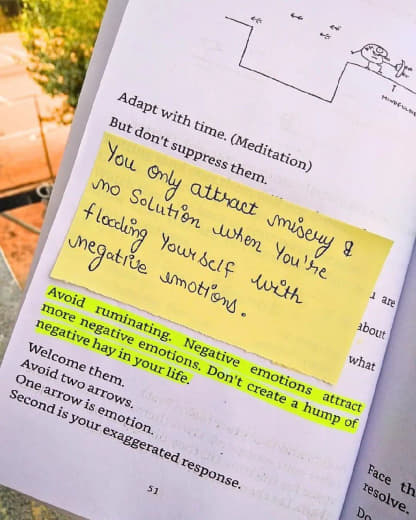 MINDFULNE
Adapt with time. (Meditation)
But don't suppress them.
You only attract misery &
no solution when you're
flooding yourself with
negative emotions.
are
about
what
Avoid ruminating. Negative emotions attract
more negative emotions. Don't create a hump of
negative hay in your life.
Welcome them.
Avoid two arrows.
One arrow is emotion.
Second is your exaggerated response.
51
Face th
resolve.
Do